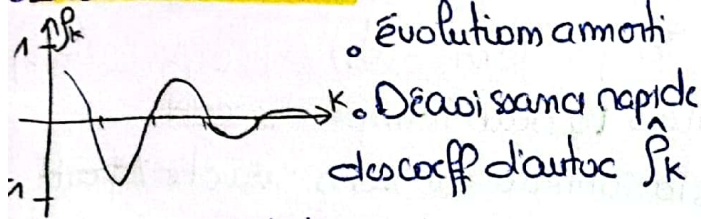 1 ρk
• évolution amorti
K
• Décroissance rapide
des coeff d'autoc ρ̂k
1